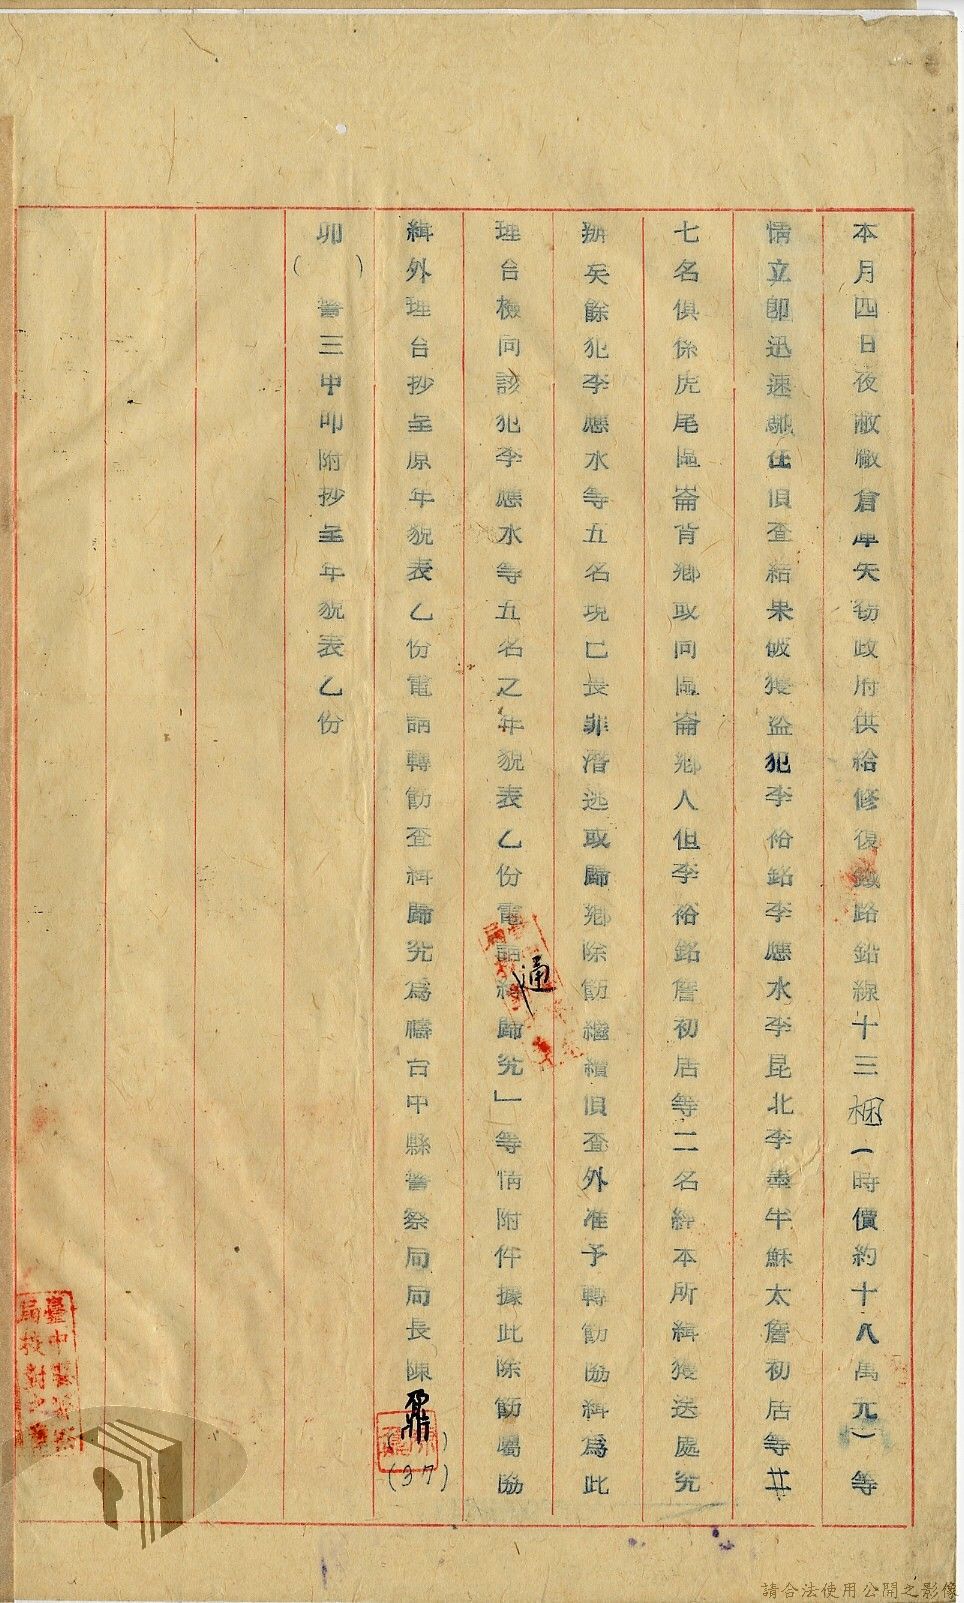 本月四日夜敝廠倉庫失窃政府供給修復鉄路鉛線十三梱(時價約十八萬元)等
情立即迅速馳往偵查結果破獲盜犯李裕銘李應水李昆北李 牛穌太詹初居等廿
七名俱係虎尾區崙背鄉或同區崙鄉人但李裕銘詹初居等二名經本所緝獲送處究
辦矣餘犯李應水等五名現已長罪潛逃或歸鄉除飭繼續偵查外准予轉飭協緝爲此
理合檢同該犯李應水等五名之年貌表乙份電請通緝歸究」等情附件據此除飭屬協
緝外理合抄呈原年貌表乙份電請轉飭查緝歸究爲禱台中縣警察局局長陳
(37)
卯( )警三申叩附抄呈年貌表乙份
臺中縣警察局校對之章
請合法使用公開之影像